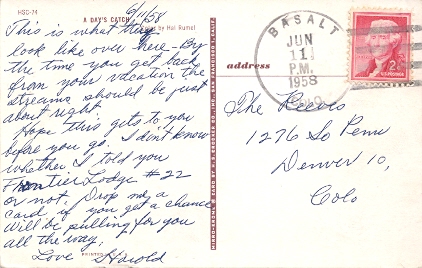 HSC-74
A DAY'S CATCH
by Hal Rumel
6/11/58
This is what they
look like over here - By
the time you get back
from your vacation the
streams should be just
about right.
Hope this gets to you
before you go. I don't know
whether I told you
Frontier Lodge #22
or not. Drop me a
card if you get a chance
will be pulling for you
all the way.
Love Harold
address
BASALT
JUN
11
P.M.
1958
COLO
2¢
The Reeves
1276 So Penn
Denver 10,
Colo